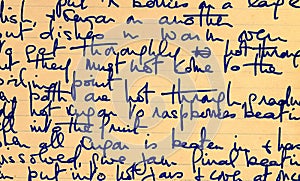 put berries in a large
dish, sugar in another
put dishes in warm oven
to get thoroughly hot through
but they must not come to the
boiling point
When both are hot through, gradu
add hot sugar to raspberries beatin
all into the fruit.
when all sugar is beaten in & has
dissolved, give jam final beatin
put into hot jars & cover at once